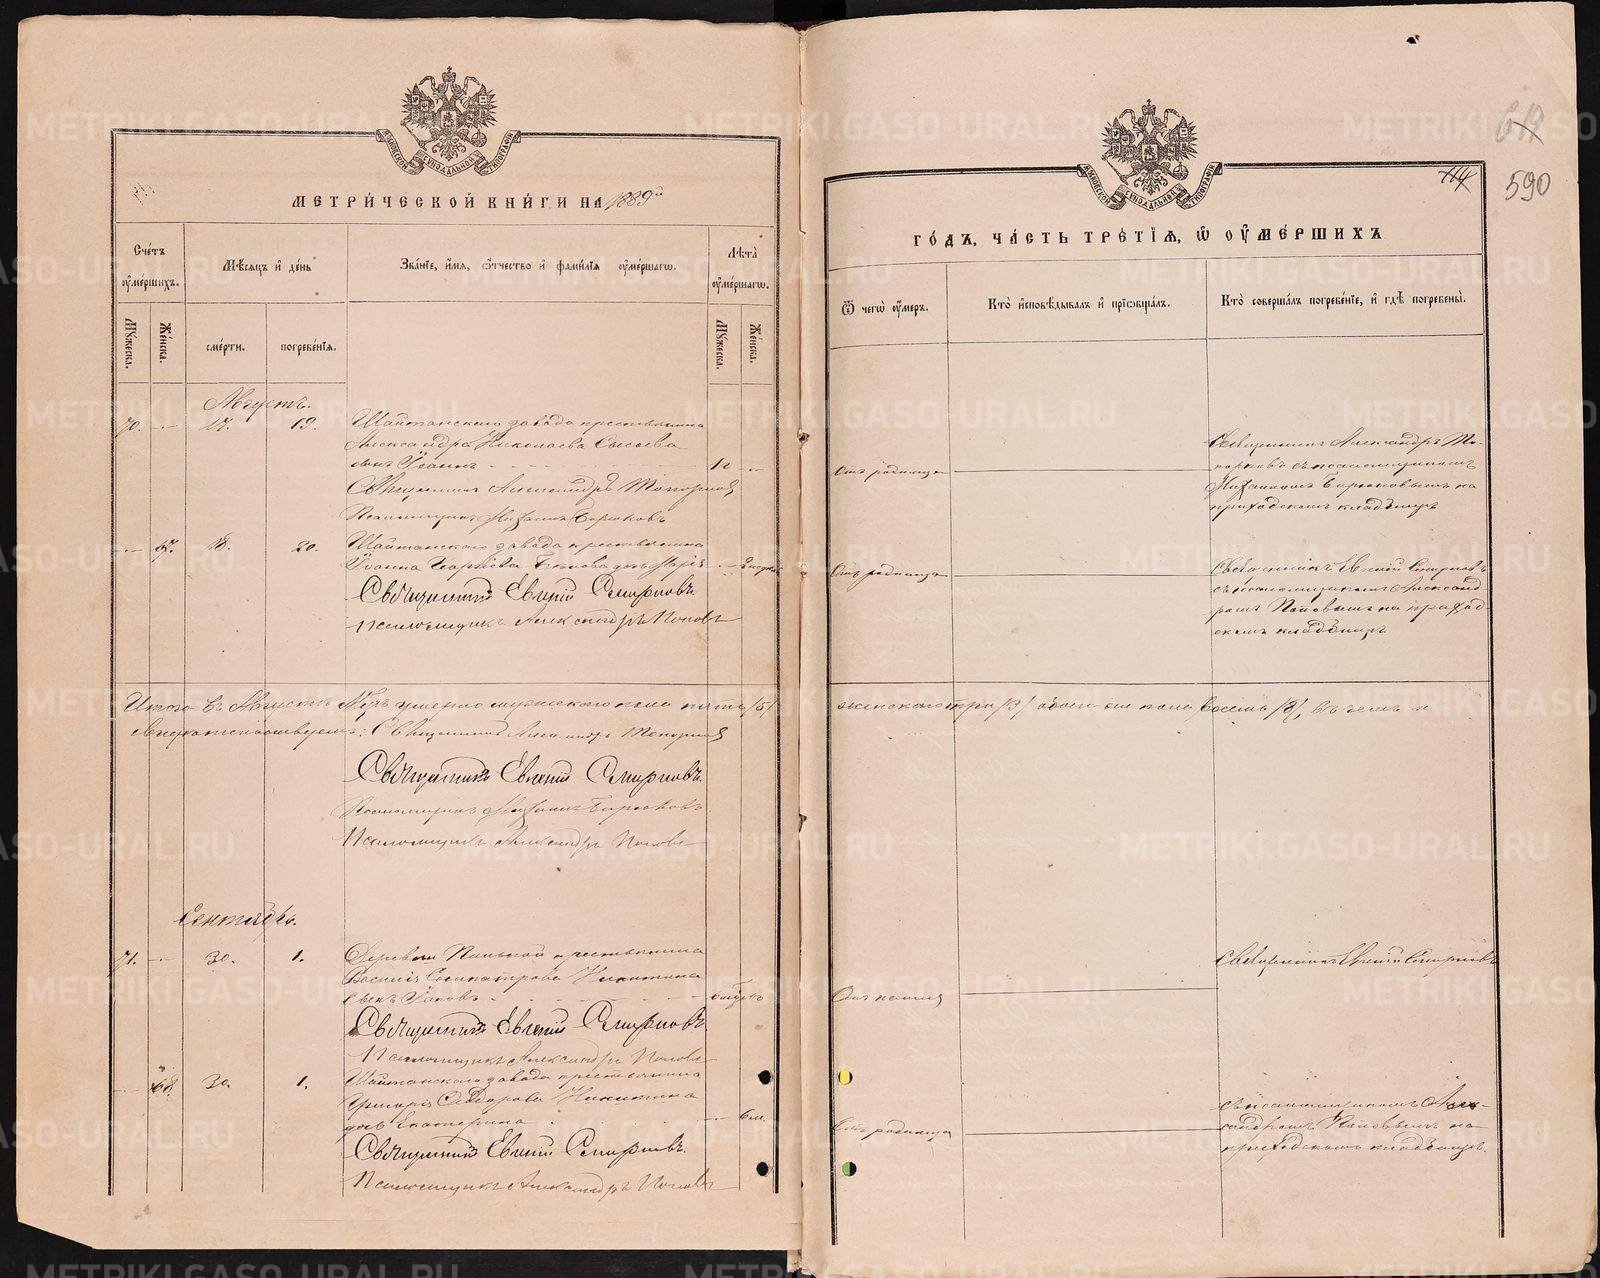 МОСКОВСКОЙ СѴНОДАЛЬНОЙ ТИПОГРАФІИ
МЕТРИ́ЧЕСКОЙ КНИ́ГИ НА 1889й
Сче́тъ ѹме́ршихъ.
Мѣ́сяцъ и де́нь
Зва́ніе, и́мя, ѻ́тчество и фами́лія ѹме́ршагѡ.
Лѣта̀ ѹме́ршагѡ.
Мужеска.
Женска.
сме́рти.
погребе́нія.
Мужеска.
Женска.
Августъ.
70. 17. 19. Шайтанскаго завода крестьянина
Александра Николаева Сысоева
сынъ Іоаннъ
Священникъ Александръ Топорковъ
Псаломщикъ Михаилъ Бирюковъ
67. 18. 20. Шайтанскаго завода крестьянина
Іоанна дочь Марія
Священникъ Евгеній Смирновъ.
Псаломщикъ Александръ Поповъ
Итого въ Августѣ Мцѣ умерло мужескаго пола пять /5/
Священникъ Александръ Топорковъ
Священникъ Евгеній Смирновъ.
Псаломщикъ Михаилъ Бирюковъ
Псаломщикъ Александръ Поповъ
Сентябрь.
71. 30. 1. Деревни крестьянина
Василія Никитина
сынъ Іаковъ
Священникъ Евгеній Смирновъ.
Псаломщикъ Александръ Поповъ
68. 30. 1. Шайтанскаго завода крестьянина
Григорія Никитина
дочь Екатерина 6 м.
Священникъ Евгеній Смирновъ.
Псаломщикъ Александръ Поповъ
МОСКОВСКОЙ СѴНОДАЛЬНОЙ ТИПОГРАФІИ
114
619
590
ГО́ДЪ, ЧА́СТЬ ТРЕ́ТІЯ, Ѡ ОУМЕ́РШИХЪ
Ѿ чегѡ ѹ́меръ.
Кто̀ и҆сповѣ́дывалъ и҆ прїѡбща́лъ.
Кто̀ соверша́лъ погребе́ніе, и҆ гдѣ̀ погребены̀.
Отъ родимца
Священникъ Александръ То-
порковъ съ псаломщикомъ
Михаиломъ Бирюковымъ на
приходскомъ кладбищѣ
Отъ родимца
Священникъ Евгеній Смирновъ
съ псаломщикомъ Александ-
ромъ Поповымъ на приход-
скомъ кладбищѣ
женскаго три /3/ обоего пола восемь /8/, въ чемъ и
Священникъ Евгеній Смирновъ
Отъ кашля
Отъ родимца
съ псаломщикомъ Алек-
сандромъ Поповымъ на
приходскомъ кладбищѣ.
METRIKI.GASO-URAL.RU